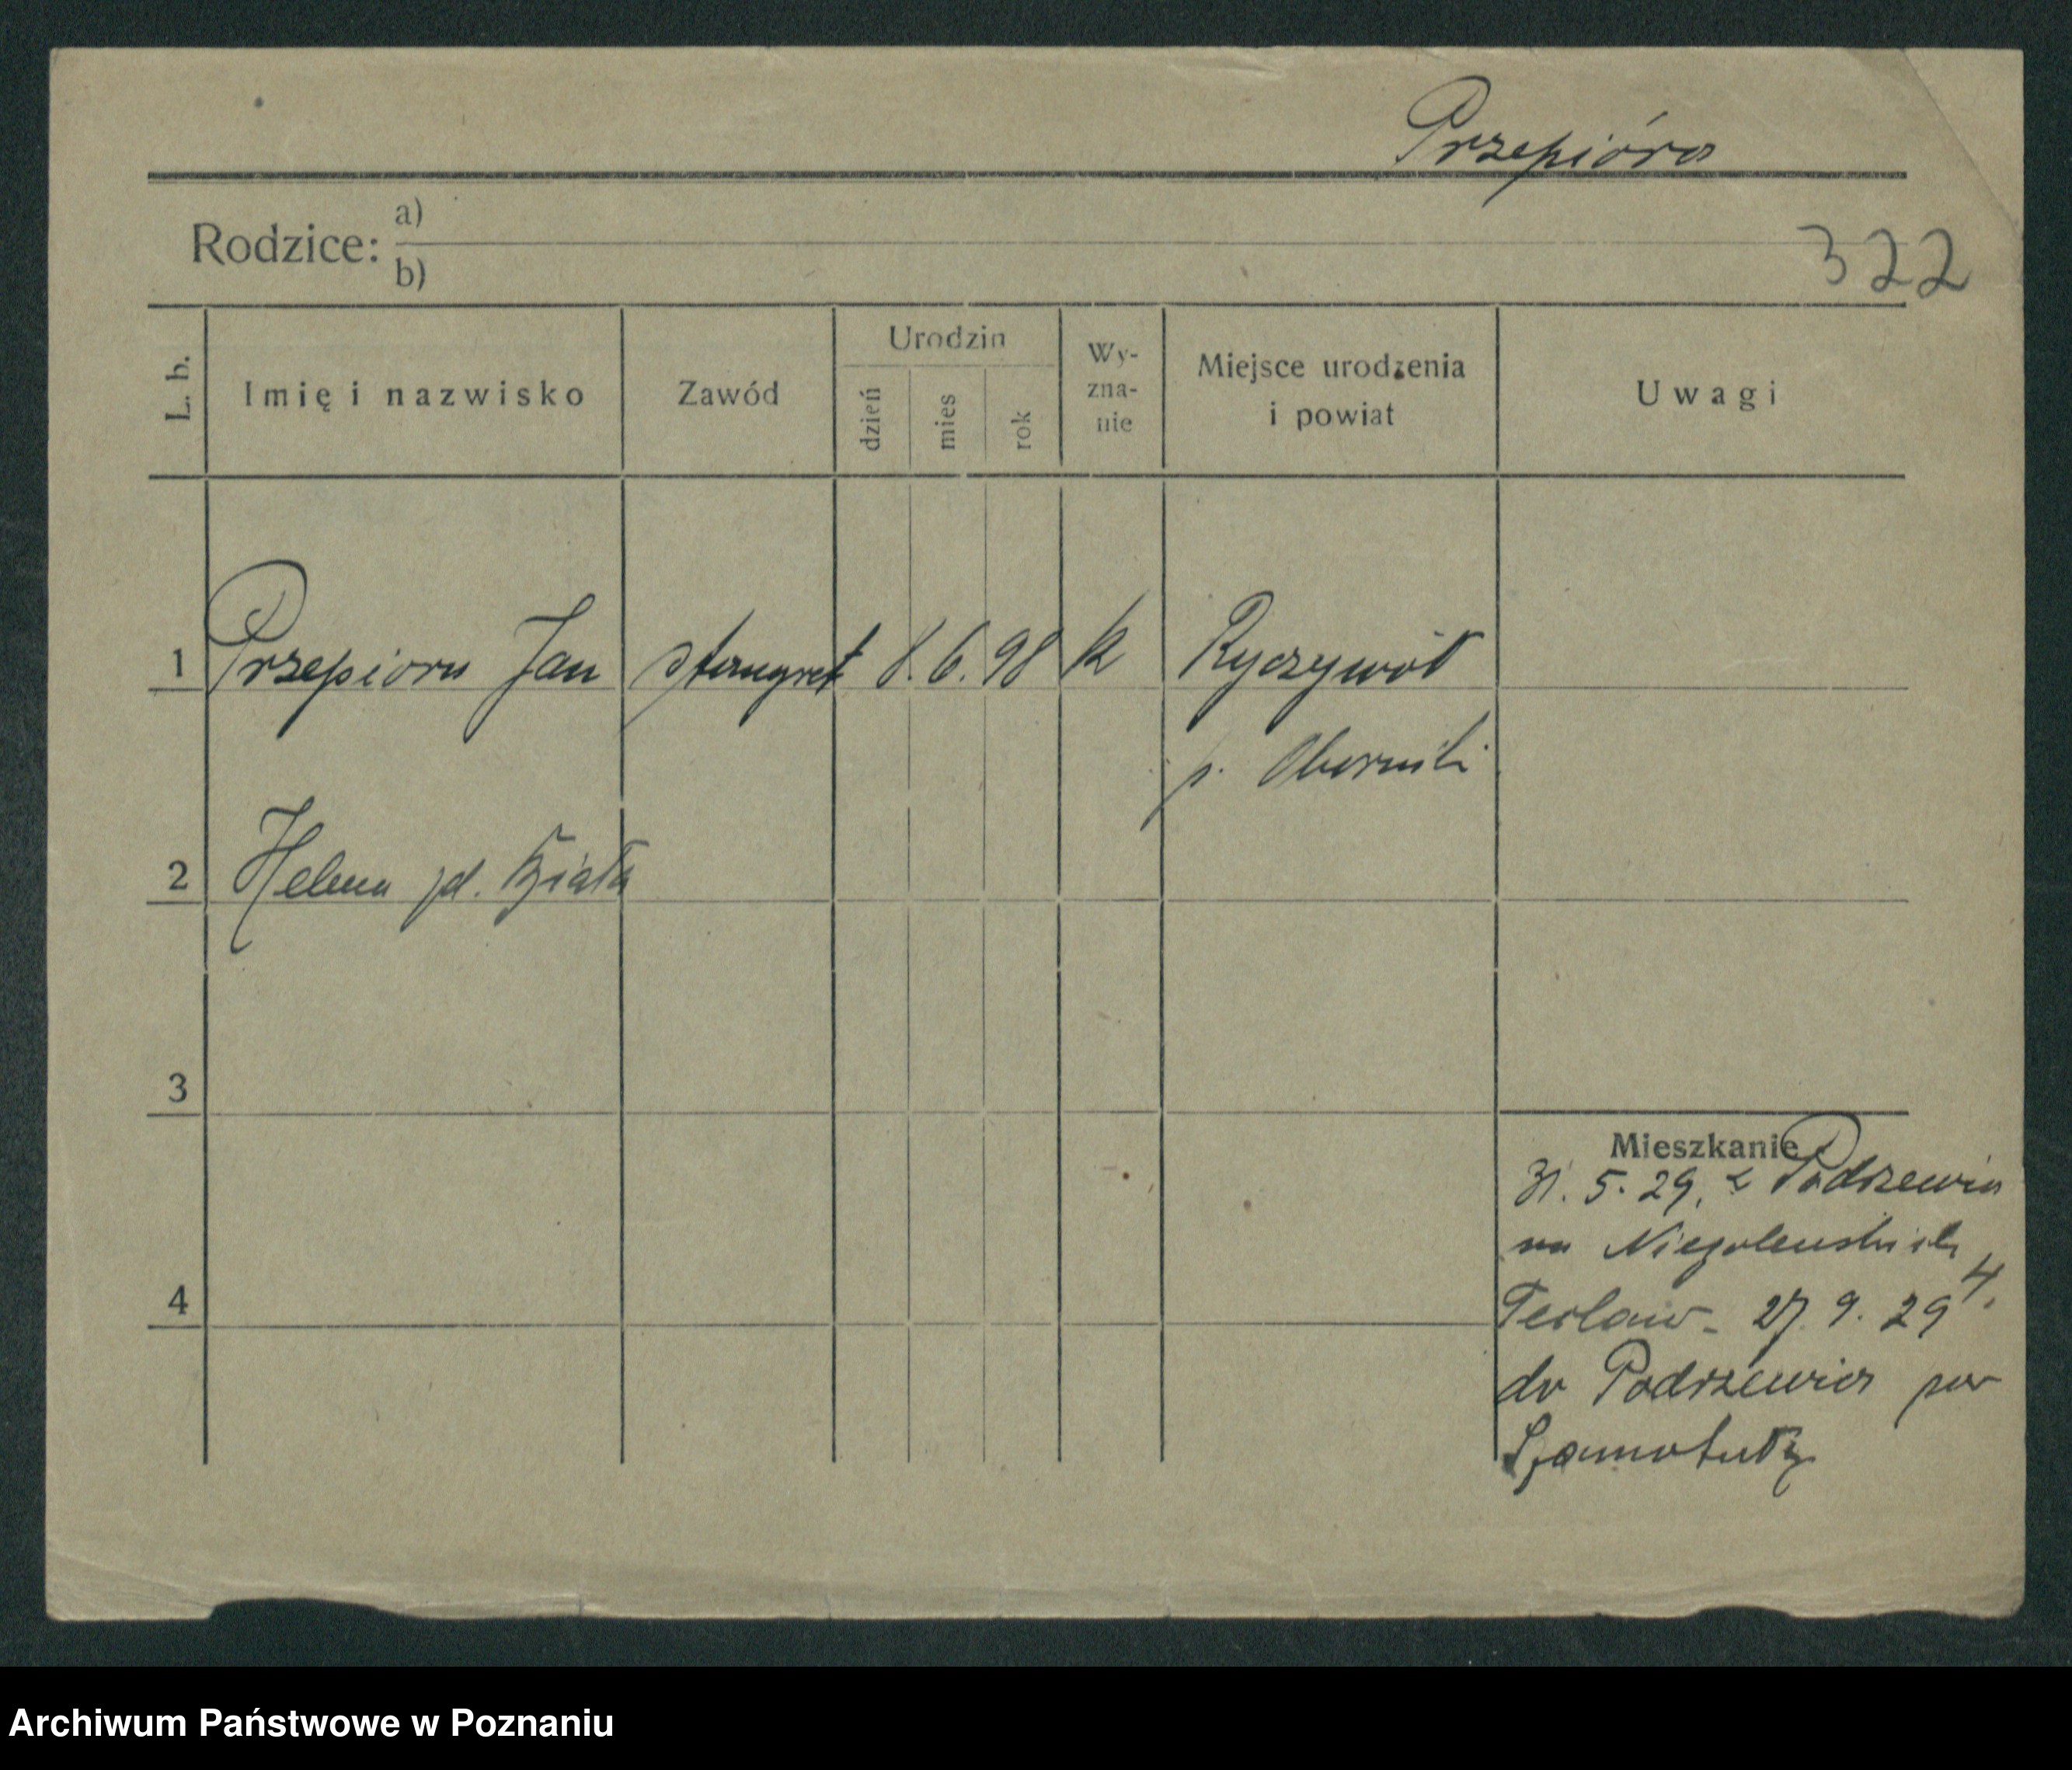 Przepióra
Rodzice: a)
b)
322
L. b. Imię i nazwisko Zawód Urodzin dzień mies rok Wy-zna-nie Miejsce urodzenia i powiat Uwagi
1 Przepiora Jan sztangret 8. 6. 98 k Ryczywół
p. Oborniki
2 Helena zd. Biała
3
Mieszkanie
31. 5. 29. z Podrzewia
na Niegolewskich
4.
4 27. 9. 29
do Podrzewia pow
Szamotuły
Archiwum Państwowe w Poznaniu